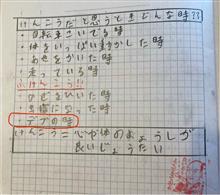 けんこうだと思うときどんな時??
・自転車こいでる時
・体をいっぱいうごかした時
・あせをかいた時
・走っている時
けんこう!!
・かぜをひいた時
・時
・デブの時
けんこう=心や体のようしが
良いじょうたい